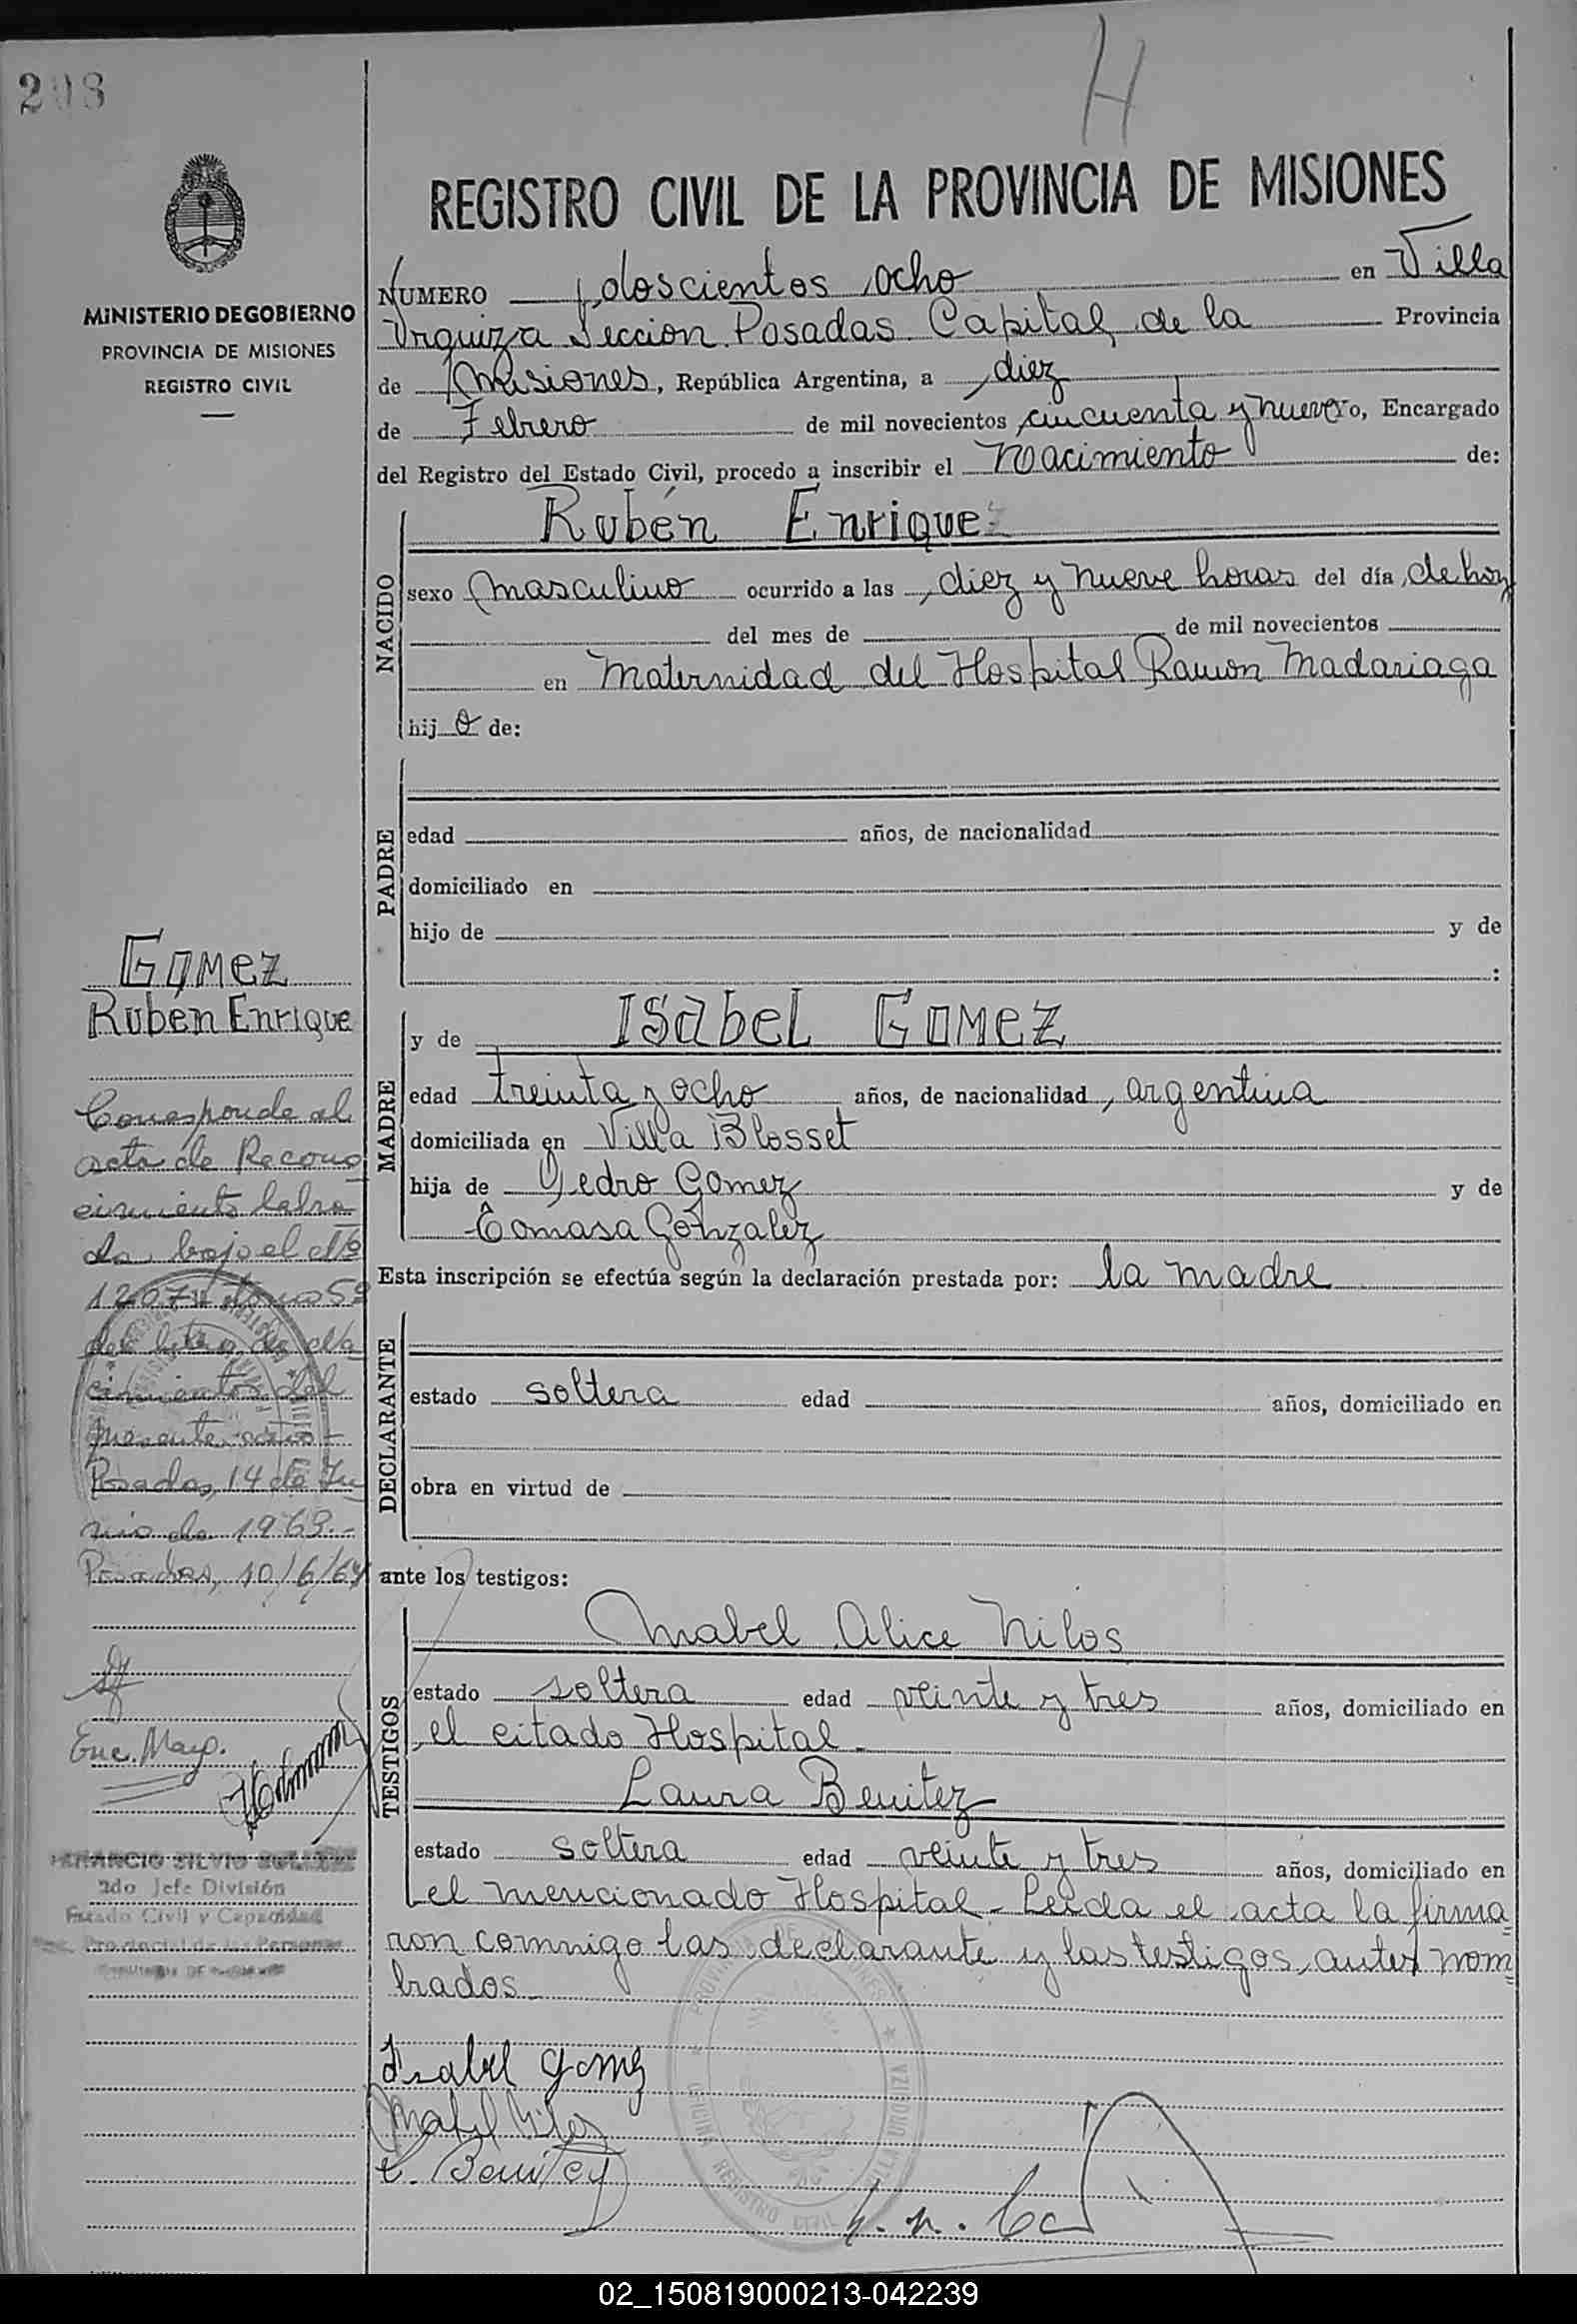 208
H
MINISTERIO DE GOBIERNO
PROVINCIA DE MISIONES
REGISTRO CIVIL
REGISTRO CIVIL DE LA PROVINCIA DE MISIONES
NUMERO doscientos ocho en Villa
Urquiza Seccion Posadas Capital de la Provincia
de Misiones, República Argentina, a diez
de Febrero de mil novecientos cincuenta y nueve yo, Encargado
del Registro del Estado Civil, procedo a inscribir el Nacimiento de:
NACIDO
Rubén Enrique
sexo masculino ocurrido a las diez y nueve horas del día de hoy
del mes de de mil novecientos
en Maternidad del Hospital Ramon Madariaga
hijo de:
PADRE
edad años, de nacionalidad
domiciliado en
hijo de y de
:
MADRE
y de Isabel Gomez
edad treinta y ocho años, de nacionalidad argentina
domiciliada en Villa Blosset
hija de Pedro Gomez y de
Tomasa Gonzalez
Esta inscripción se efectúa según la declaración prestada por: la madre
DECLARANTE
estado soltera edad años, domiciliado en
obra en virtud de
ante los testigos:
TESTIGOS
Mabel Alice Nilos
estado soltera edad veinte y tres años, domiciliado en
el citado Hospital
Laura Benitez
estado soltera edad veinte y tres años, domiciliado en
el mencionado Hospital - Leida el acta la firma
ron comnigo las declarante y las testigos, antes nom
brados
Isabel Gomez
Mabel Nilos
L. Benitez
Gomez
Ruben Enrique
Corresponde al
acta de Recono
cimiento labra
da bajo el Nº
1207 tomo 5º
del libro de Na
cimientos del
presente
Posadas, 14 de Ju
nio de 1963.-
Posadas, 10/6/64
Enc. Mayo.
SILVIO
2do Jefe División
Estado Civil y Capacidad
Provincial de las Personas
PROVINCIA DE MISIONES
OFICINA REGISTRO CIVIL
VILLA URQUIZA
02_150819000213-042239